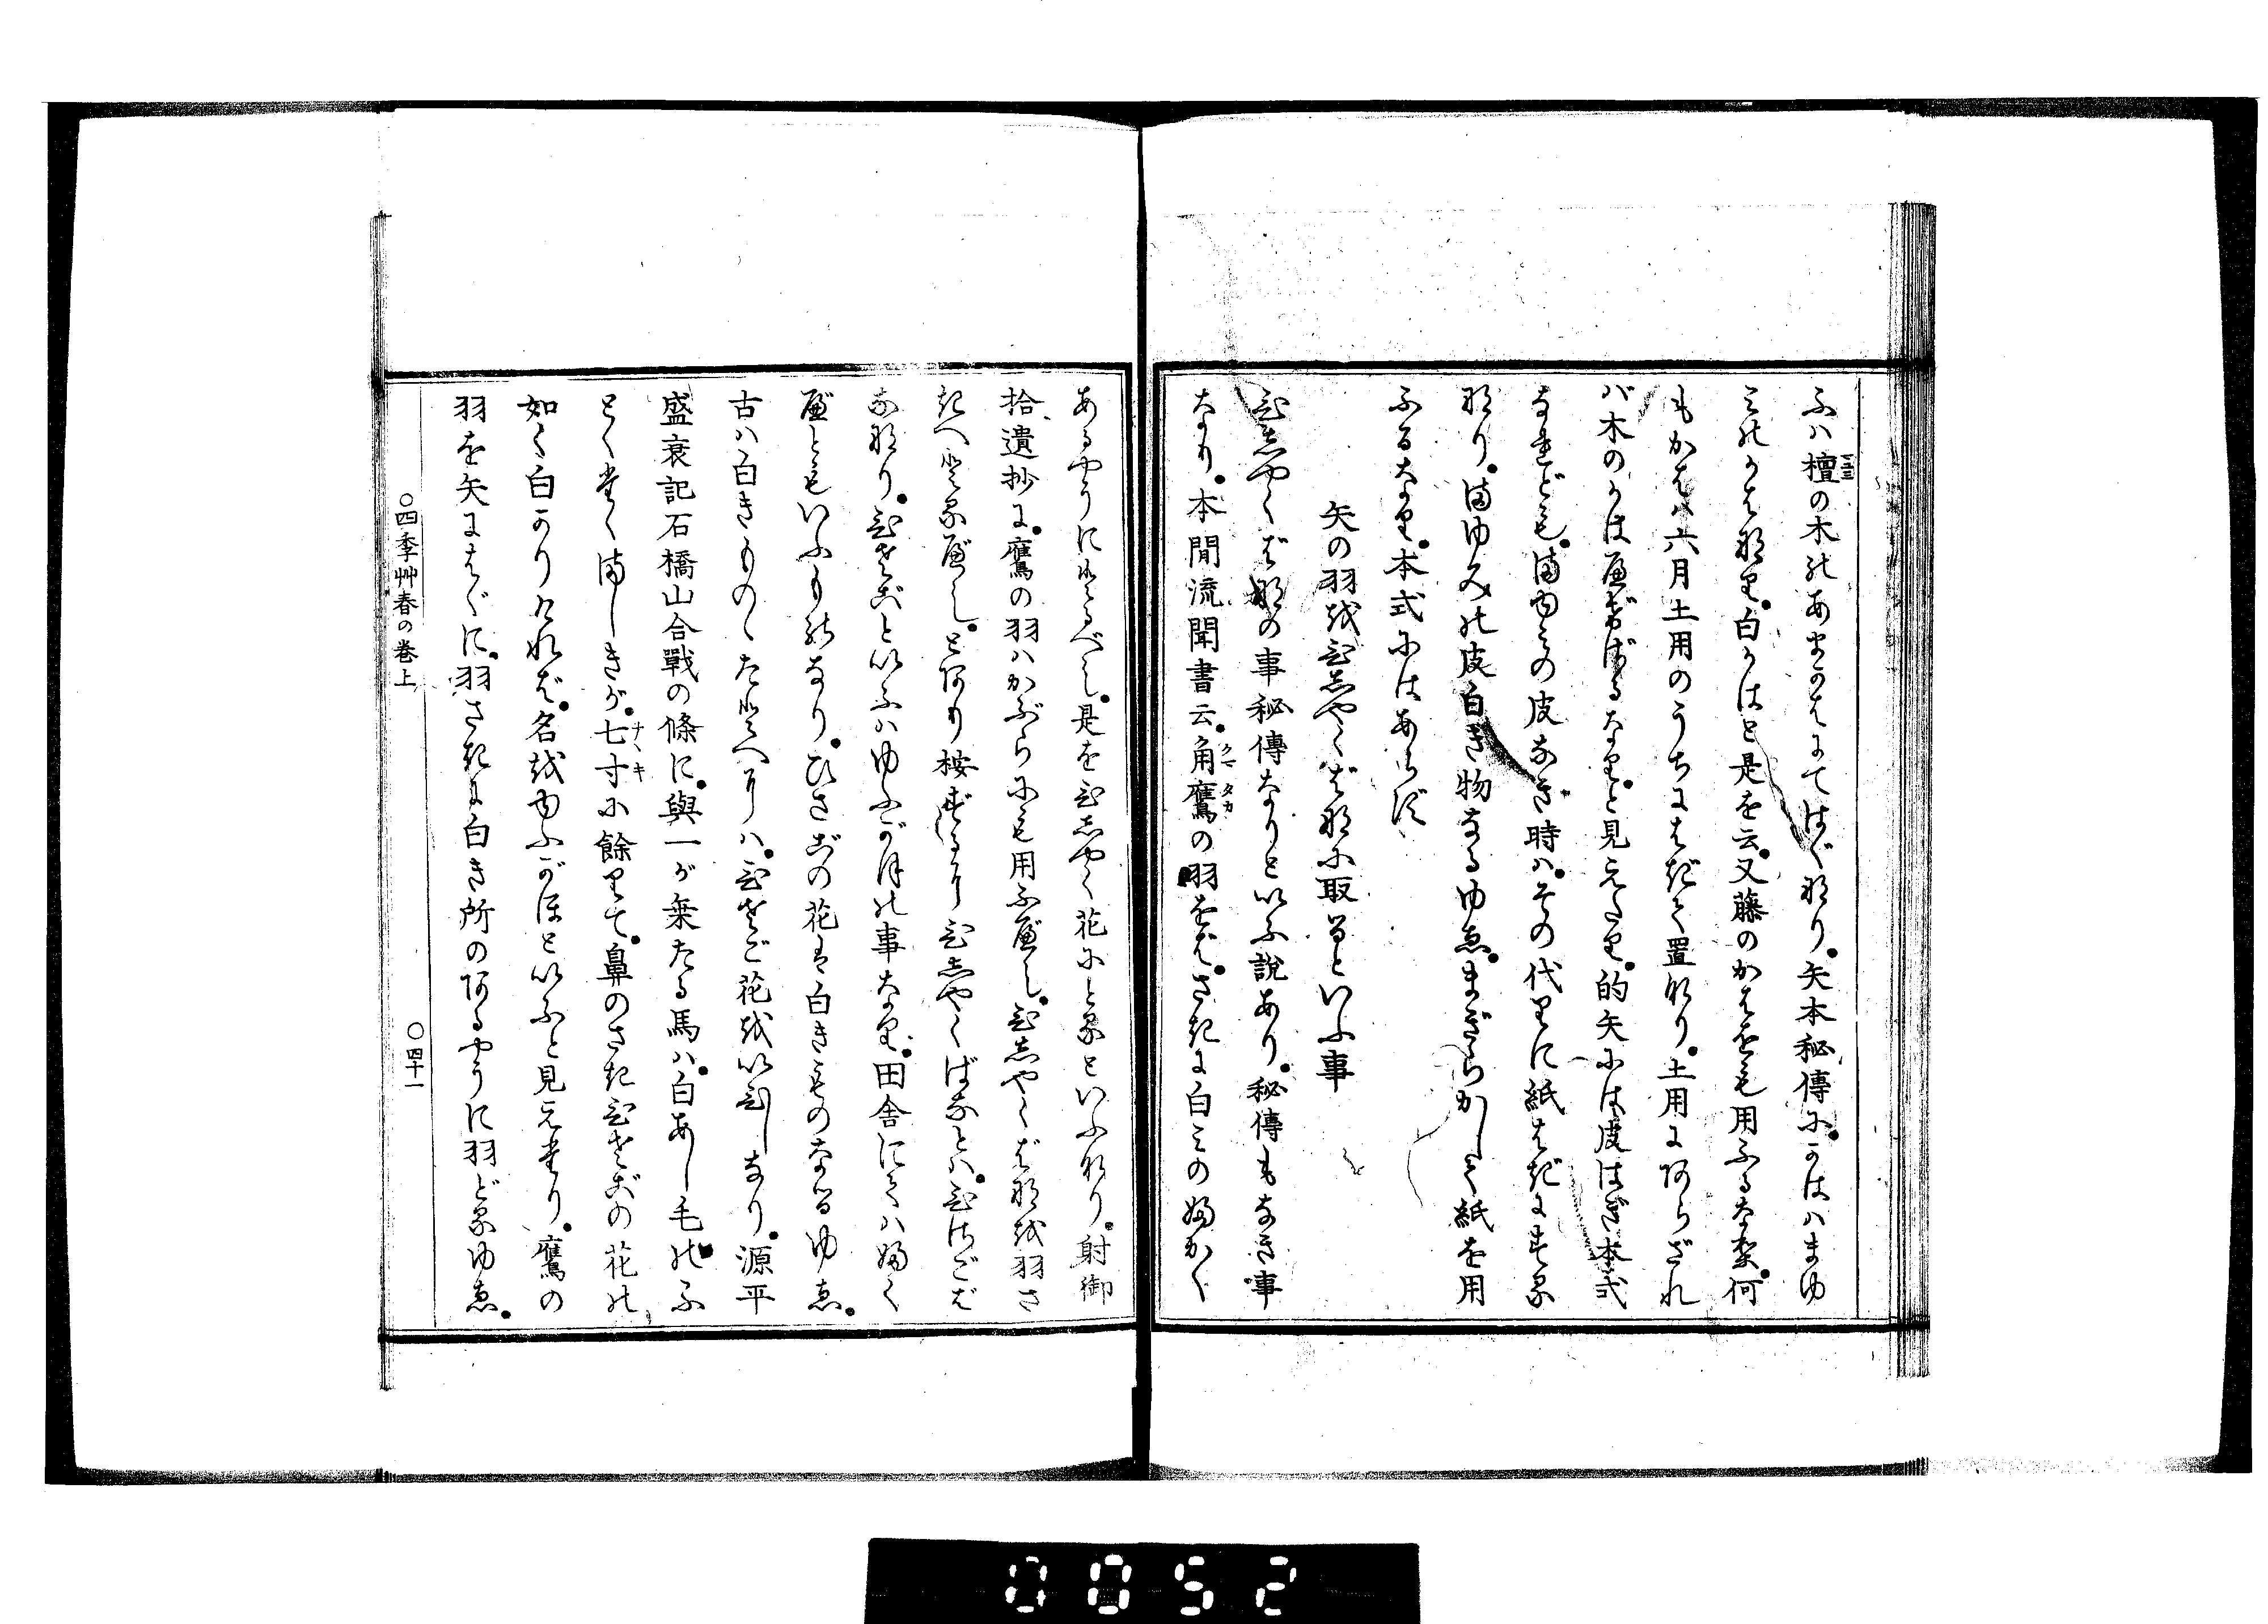 ふハ檀の木のあまかはにてはぐなり。矢本秘傳に。かはハまゆ
みのかはなり。白かはと是を云。又藤のかはをも用ふるなり。何
もかはハ六月土用のうちにはぎて置なり。土用にあらざれ
バ木のかはへぎがたきなり。と見えたり。的矢には皮はぎ本式
なれども。まゆみの皮なき時ハ。その代りに紙はぎにする
なり。まゆみの皮白き物なるゆゑ。まぎらかして紙を用
ふるなり。本式にはあらず
矢の羽をひしやくばなに取るといふ事
ひしやくばなの事秘傳なりといふ説あり。秘傳もなき事
なり。本間流聞書云。角鷹の羽をば。さきに白みの ふかく
クマタカ
あるやうにとるべし。是をひしやく花にとるといふなり。射御
拾遺抄に。鷹の羽ハかぶらにも用ふべし。ひしやくばなを羽さ
きへとるべし。とあり按ずるにひしやくばなとハ。ひさごば
ななり。ひさごといふハゆふがほの事なり。田舎にてハふく
べともいふものなり。ひさごの花は白きものなるゆゑ。
古ハ白きものゝたとへにハ。ひさご花をいひしなり。源平
盛衰記石橋山合戰の條に。與一が乗たる馬ハ。白あし毛のふ
とくたくましきが。七寸に餘りて。鼻のさきひさごの花の
ナヽキ
如く白かりければ。名をゆふがほといふと見えたり。鷹の
羽を矢にはぐに。羽さきに白き所のあるやうに羽どるゆゑ。
○四季艸春の巻上
○四十一
0052